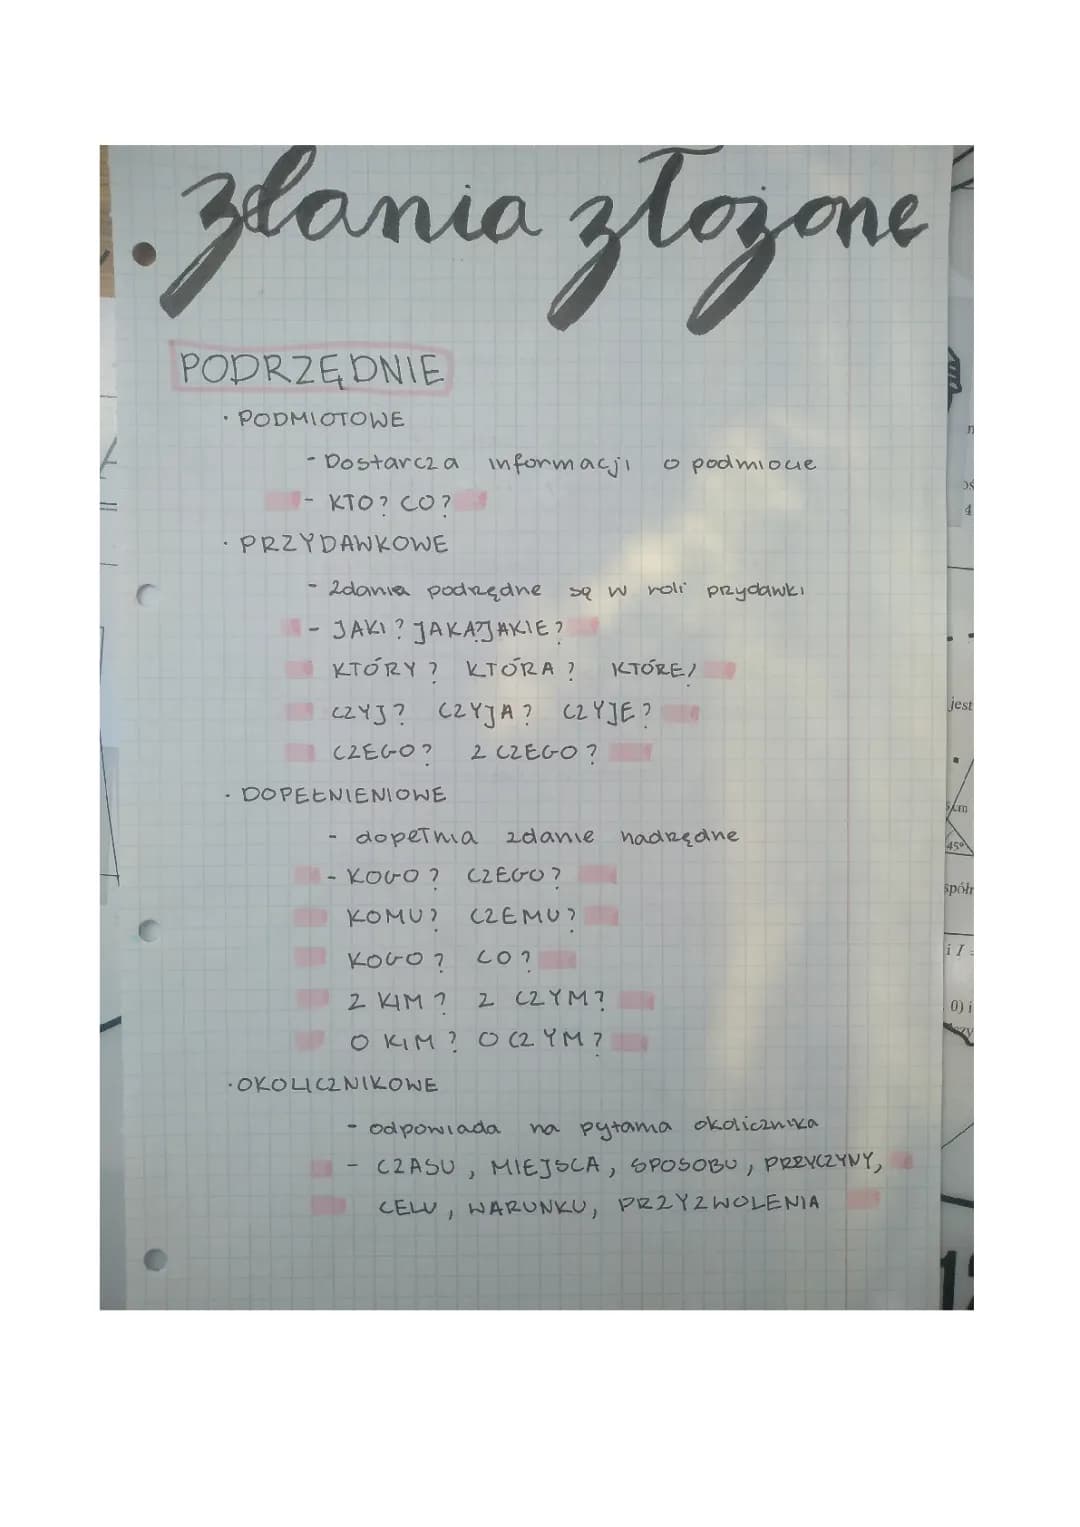 zdania złożone
PODRZĘDNIE
· PODMIOTOWE
- Dostarcza informacji o podmiocie
- KTO? CO?
· PRZYDAWKOWE
- Zdania podrzędne są w roli przydawki
- JAKI? JAKA? JAKIE?
KTÓRY? KTÓRA? KTÓRE?
CZYJ? CZYJA? CZYJE?
CZEGO? Z CZEGO?
· DOPEŁNIENIOWE
- dopełnia zdanie nadrzędne
- KOGO? CZEGO?
KOMU? CZEMU?
KOGO? CO?
Z KIM? Z CZYM?
O KIM? O CZYM?
· OKOLICZNIKOWE
- odpowiada na pytania okolicznika
- CZASU, MIEJSCA, SPOSOBU, PRZYCZYNY,
CELU, WARUNKU, PRZYZWOLENIA
jest
cm
45°
0) i